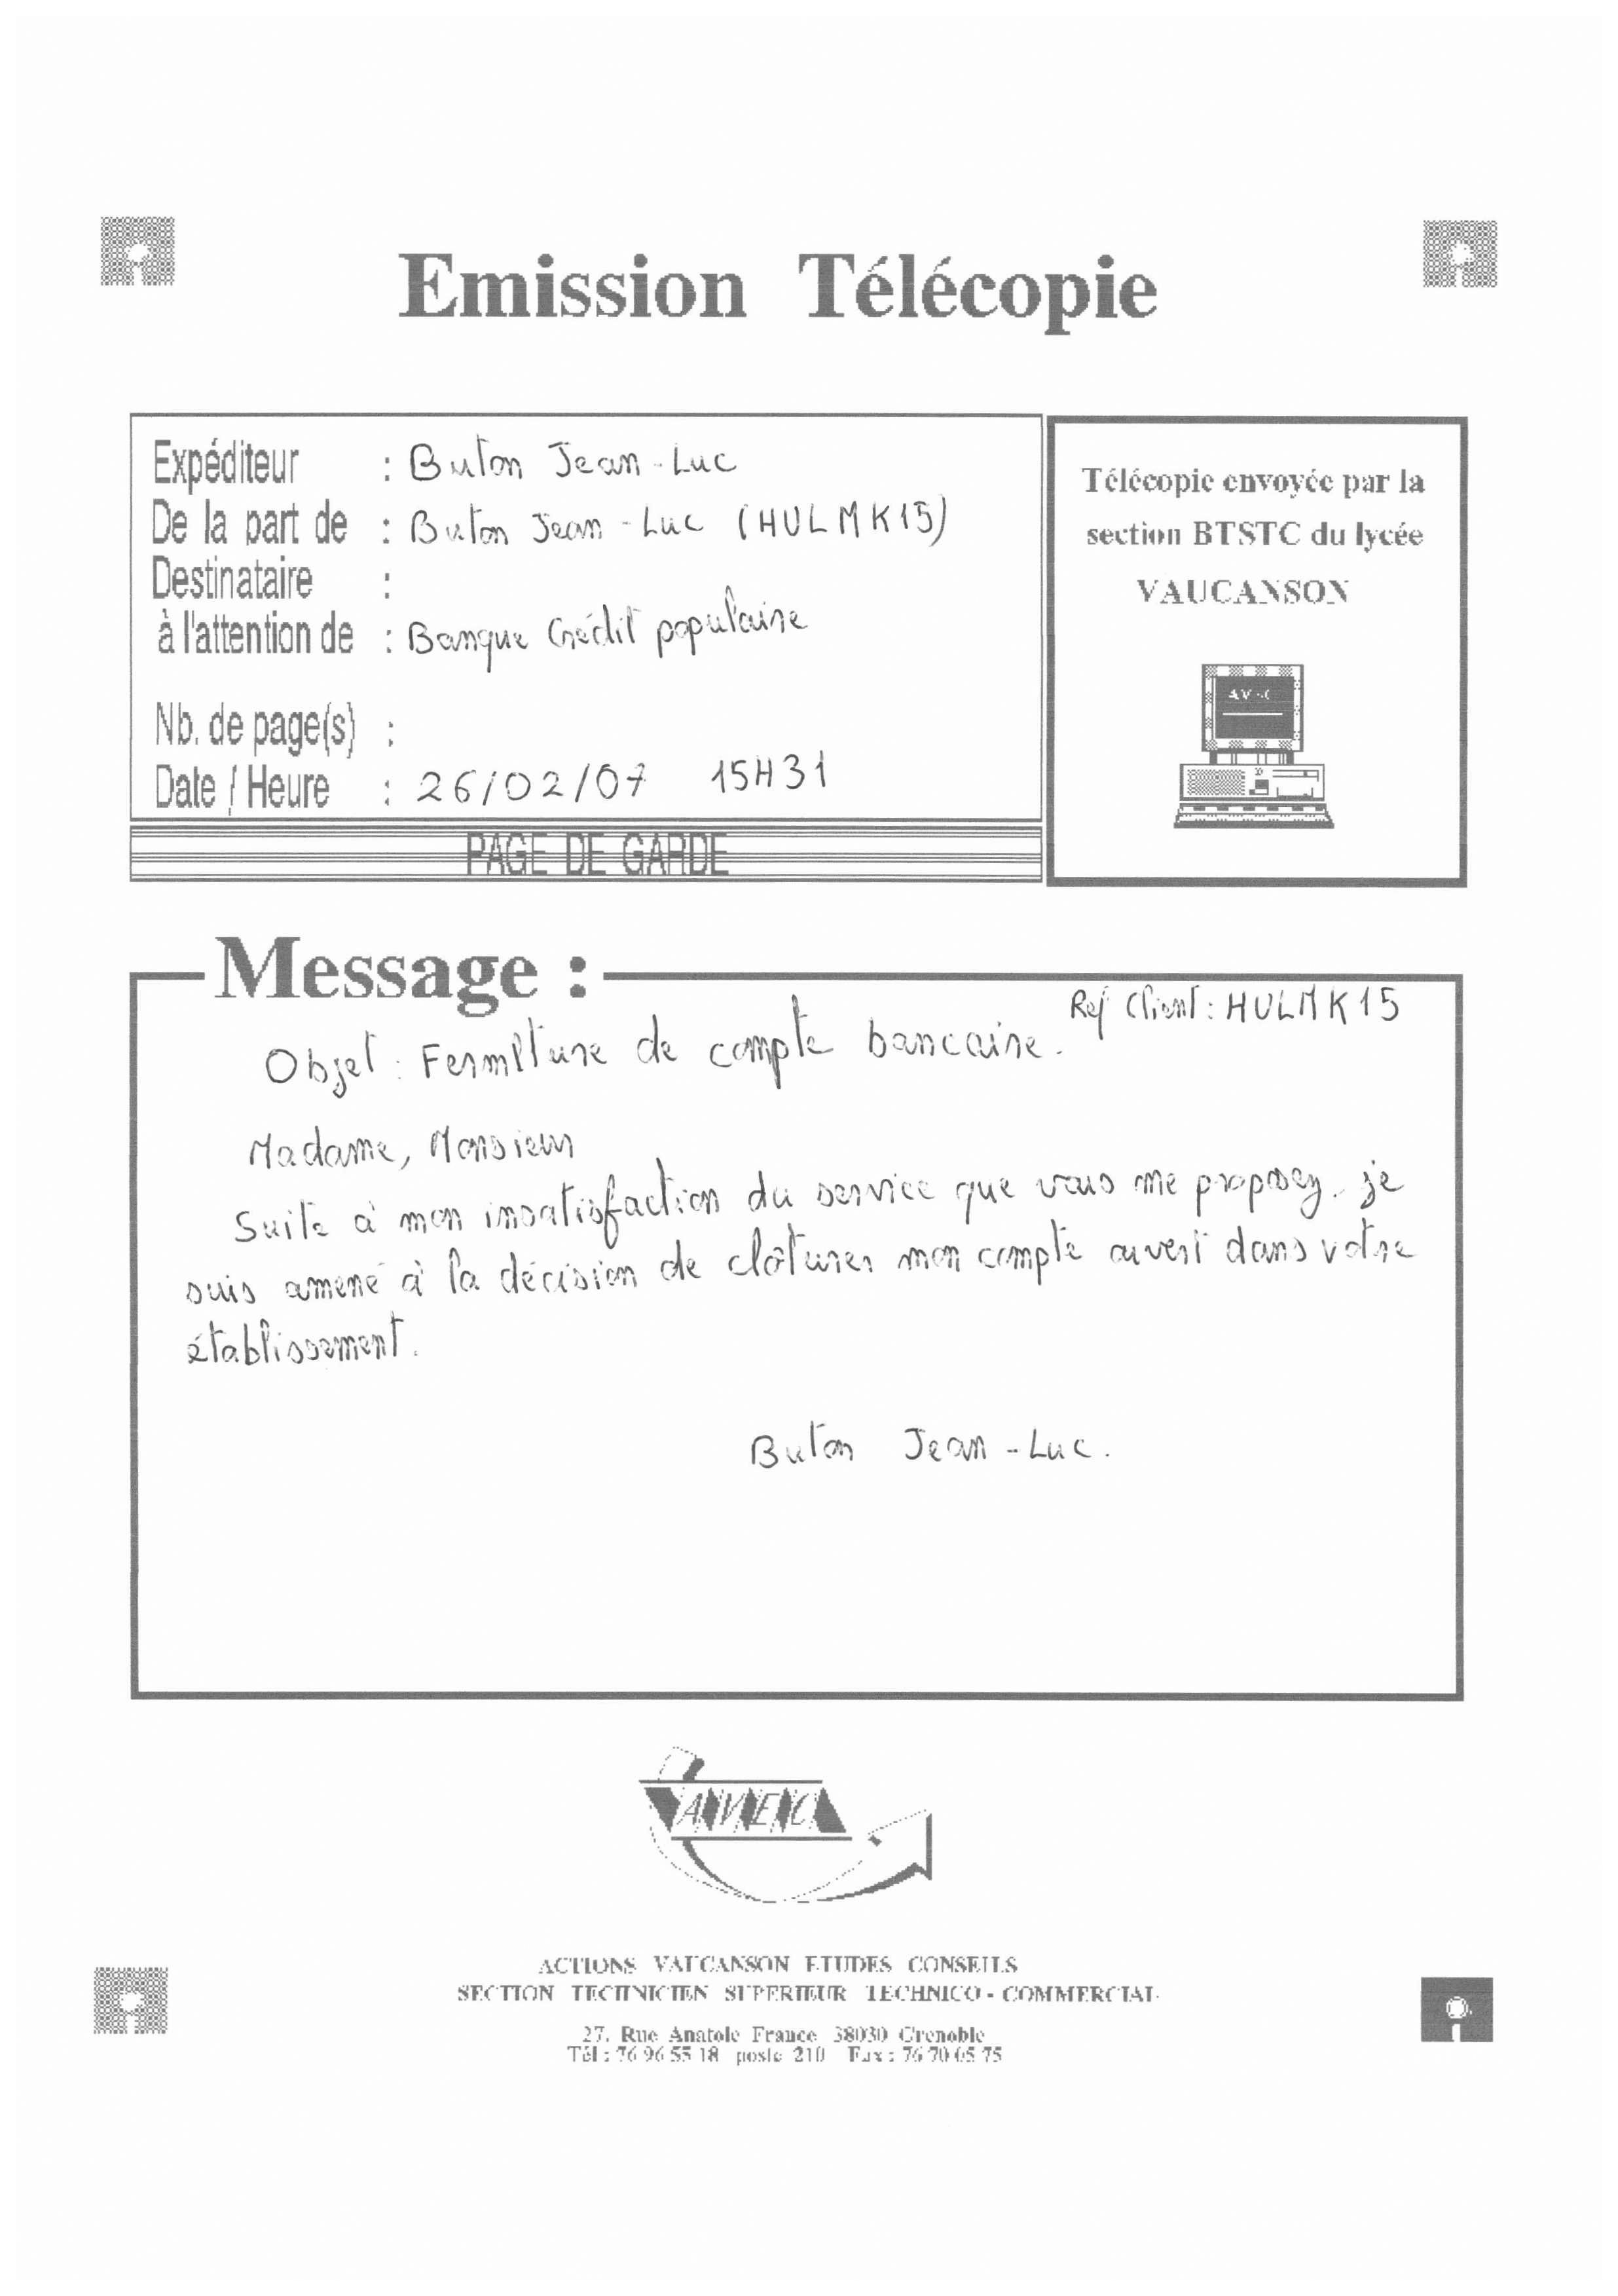 Emission Télécopie
Expéditeur : Buton Jean-Luc
De la part de : Buton Jean-Luc (HULMK15)
Destinataire :
à l'attention de : Banque Crédit populaire
Nb. de page(s) :
Date / Heure : 26/02/07 15H31
PAGE DE GARDE
Télécopie envoyée par la
section BTSTC du lycée
VAUCANSON
Message :
Ref Client : HULMK15
Objet : Fermeture de compte bancaire.
Madame, Monsieur
Suite à mon insatisfaction du service que vous me proposez. je
suis amené à la décision de clôturer mon compte ouvert dans votre
établissement.
Buton Jean-Luc.
AVEC
ACTIONS VAUCANSON ETUDES CONSEILS
SECTION TECHNICIEN SUPERIEUR TECHNICO - COMMERCIAL
27, Rue Anatole France 38030 Grenoble
Tél : 76 96 55 18 poste 210 Fax : 76 70 05 75